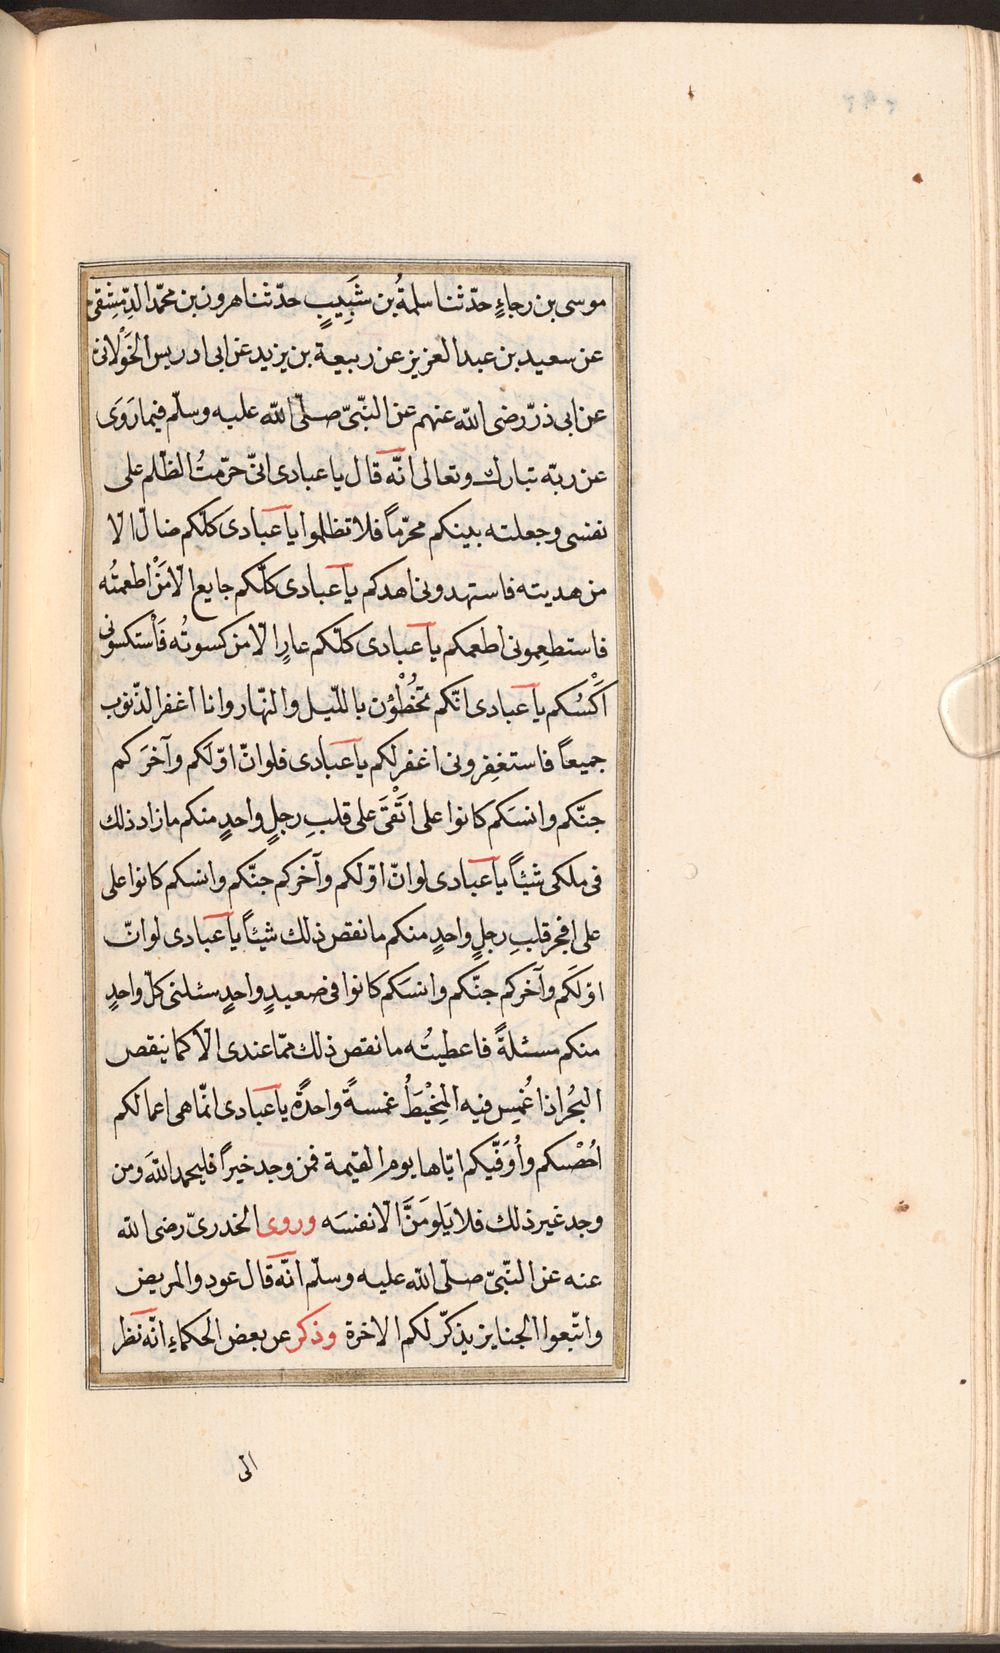 موسى بن رجاءٍ حدّثنا سلمةُ بن شَبِيبٍ حدّثنا هرون بن محمّد الدِّمِشقى
عن سعيد بن عبد العزيز عن ربيعة بن يزيد عن ابى ادريس الخَوْلانى
عن ابى ذرّ رضى الله عنهم عن النّبىّ صلّى الله عليه وسلّم فيما رَوَى
عن ربّه تبارك وتعالى انّه قال يا عبادى انّى حرّمتُ الظّلم على
نفسى وجعلته بينكم محرّماً فلا تظلموا يا عبادىَ كلّكم ضالّ الّا
من هديته فاستهدونى اهدكم يا عبادى كلّكم جايع الّا مَنْ اطعمتُه
فاستطعِمونى اطعمكم يا عبادى كلّكم عارٍ الّا من كسوتُه فَاْستكسونى
اَكْسُكم يا عبادى انّكم تُخْطْؤن باللّيل والنّهار وانا اغفر الذّنوب
جميعاً فاستغفِرونى اغفر لكم يا عبادى فلو انّ اوّلكم وآخرَكم
جنّكم وانسَكم كانوا على اَتْقَى على قلبِ رجلٍ واحدٍ منكم ما زاد ذلك
فى ملكى شيئاً يا عبادى لو انّ اوّلكم وآخركم جنّكم وانسكم كانوا على
على افجر قلبِ رجلٍ واحدٍ منكم ما نقص ذلك شيئاً يا عبادى لو انّ
اوّلَكم وآخركم جنّكم وانسَكم كانوا فى صعيدٍ واحدٍ سئلنى كلّ واحدٍ
منكم مسئلةً فاعطيتُه ما نقص ذلك ممّا عندى الّا كما ينقص
البحُر اذا غُمِس فيه المِخْيَطُ غمسةً واحدةً يا عبادى انّما هى اعمالكم
اُحْصكم وأُوَفّيكم ايّاها يوم القيمة فمن وجد خيراً فليحمد اللهَ ومن
وجد غير ذلك فلا يَلومَنَّ الّا نفسَه وروى الخدرىّ رضى الله
عنه عن النّبىّ صلّى الله عليه وسلّم انّه قال عودوا المريض
واتّبعوا الجنايز يذكّر لكم الاخرة وذكر عن بعض الحكماءِ انّه نظر
الى